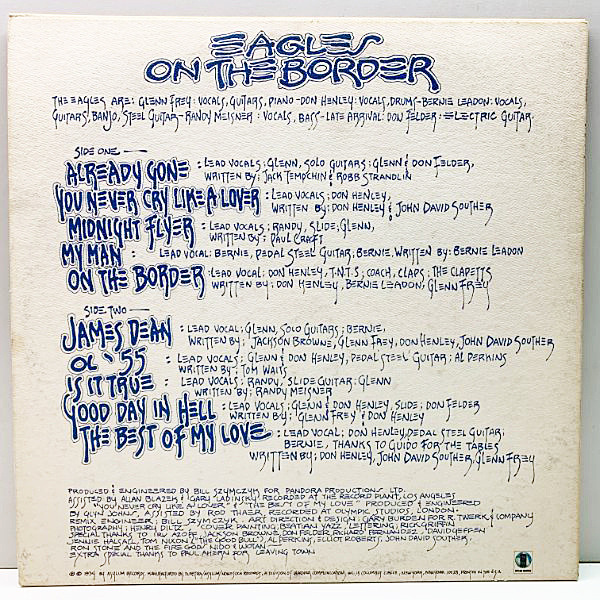 EAGLES
ON THE BORDER
THE EAGLES ARE: GLENN FREY: VOCALS, GUITARS, PIANO - DON HENLEY: VOCALS, DRUMS - BERNIE LEADON: VOCALS,
GUITARS, BANJO, STEEL GUITAR - RANDY MEISNER: VOCALS, BASS - LATE ARRIVAL: DON FELDER: ELECTRIC GUITAR.
SIDE ONE
ALREADY GONE : LEAD VOCALS: GLENN, SOLO GUITARS: GLENN & DON FELDER,
WRITTEN BY: JACK TEMPCHIN & ROBB STRANDLIN
YOU NEVER CRY LIKE A LOVER : LEAD VOCALS: DON HENLEY,
WRITTEN BY: DON HENLEY & JOHN DAVID SOUTHER
MIDNIGHT FLYER : LEAD VOCALS: RANDY, SLIDE, GLENN,
WRITTEN BY: PAUL CRAFT
MY MAN : LEAD VOCAL: BERNIE, PEDAL STEEL GUITAR: BERNIE, WRITTEN BY: BERNIE LEADON
ON THE BORDER : LEAD VOCAL: DON HENLEY, T.N.T.S; COACH, CLAPS: THE CLAPETTS
WRITTEN BY: DON HENLEY, BERNIE LEADON, GLENN FREY
SIDE TWO
JAMES DEAN : LEAD VOCAL: GLENN, SOLO GUITARS: BERNIE,
WRITTEN BY: JACKSON BROWNE, GLENN FREY, DON HENLEY, JOHN DAVID SOUTHER
OL' 55 : LEAD VOCALS: GLENN & DON HENLEY, PEDAL STEEL GUITAR: AL PERKINS
WRITTEN BY: TOM WAITS
IS IT TRUE : LEAD VOCALS: RANDY, SLIDE GUITAR: GLENN
WRITTEN BY: RANDY MEISNER
GOOD DAY IN HELL : LEAD VOCALS: GLENN & DON HENLEY, SLIDE: DON FELDER
WRITTEN BY: GLENN FREY & DON HENLEY
THE BEST OF MY LOVE : LEAD VOCAL: DON HENLEY, PEDAL STEEL GUITAR:
BERNIE, THANKS TO GUIDO FOR THE TABLES
WRITTEN BY: DON HENLEY, JOHN DAVID SOUTHER, GLENN FREY
PRODUCED & ENGINEERED BY BILL SZYMCZYK FOR PANDORA PRODUCTIONS LTD.
ASSISTED BY ALLAN BLAZEK & GARY LADINSKY RECORDED AT THE RECORD PLANT, LOS ANGELES
"YOU NEVER CRY LIKE A LOVER" & "THE BEST OF MY LOVE" PRODUCED & ENGINEERED
BY GLYN JOHNS, ASSISTED BY ROD THAER, RECORDED AT OLYMPIC STUDIOS, LONDON.
REMIX ENGINEER: BILL SZYMCZYK. ART DIRECTION & DESIGN: GARY BURDEN FOR R. TWERK & COMPANY
PHOTOGRAPHY: HENRY DILTZ COVER PAINTING: BEATIAN YAZZ, LETTERING: RICK GRIFFIN
SPECIAL THANKS TO IRV AZOFF, JACKSON BROWNE, DON FELDER, RICHARD FERNANDEZ, DAVID GEFFEN
JENNIE HALSALL, TOM NIXON ("THE GOOD BLUE"), AL PERKINS, ELLIOT ROBERTS, JOHN DAVID SOUTHER,
RON STONE AND THE FIRE GOD/ NIDO & WOTAN
EXTRA SPECIAL THANKS TO PAUL AHERN FOR LEAVING TOWN